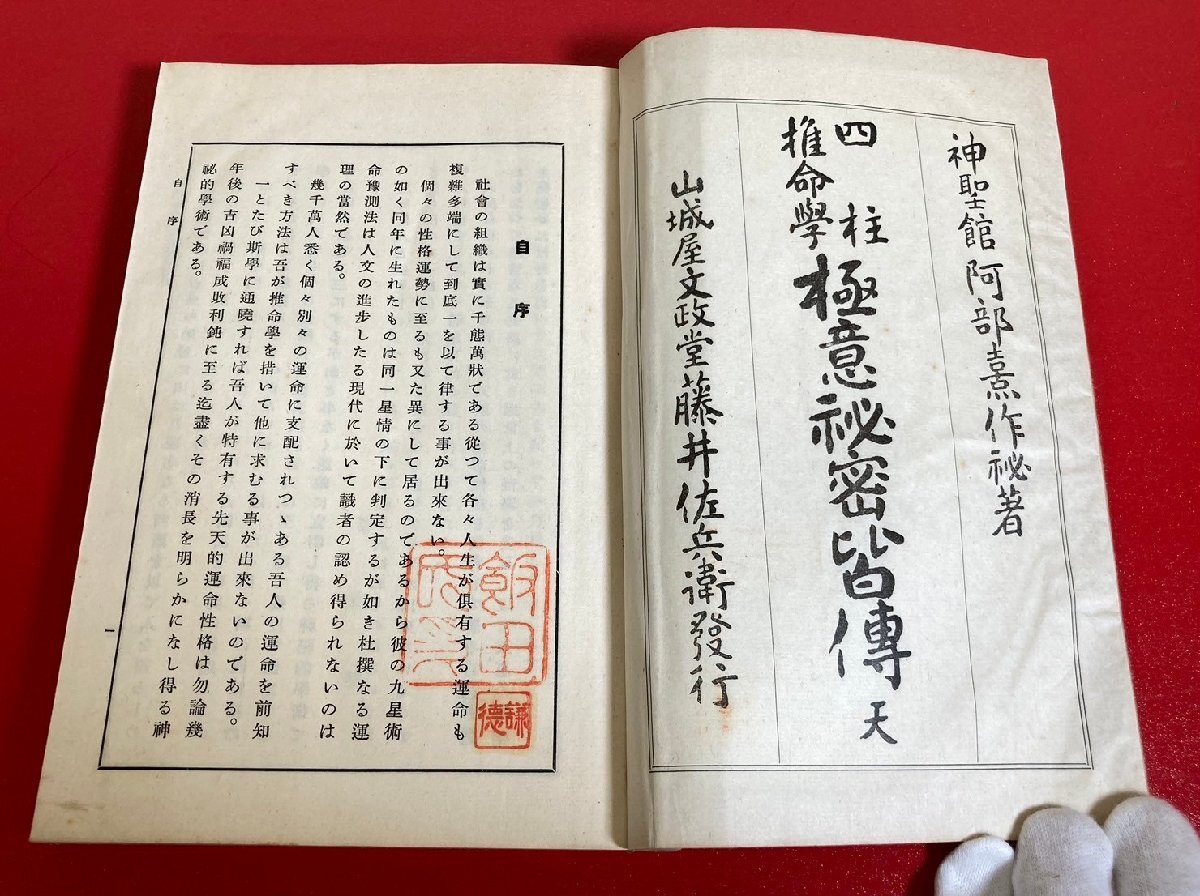 神聖館 阿部熹作祕著
四柱
推命學
極意祕密皆傳 天
山城屋文政堂藤井佐兵衞發行
自序
社會の組織は實に千態萬狀である從つて各々人生が俱有する運命も
複雜多端にして到底一を以て律する事が出來ない。
個々の性格運勢に至るも又た異にして居るのであるから彼の九星術
の如く同年に生れたものは同一星情の下に判定するが如き杜撰なる運
命豫測法は人文の進步したる現代に於いて識者の認め得られないのは
理の當然である。
幾千萬人悉く個々別々の運命に支配されつゝある吾人の運命を前知
すべき方法は吾が推命學を措いて他に求むる事が出來ないのである。
一とたび斯學に通曉すれば吾人が特有する先天的運命性格は勿論幾
年後の吉凶禍福成敗利鈍に至る迄盡くその消長を明らかになし得る神
祕的學術である。
自序
一
飯田
氏印
謙德